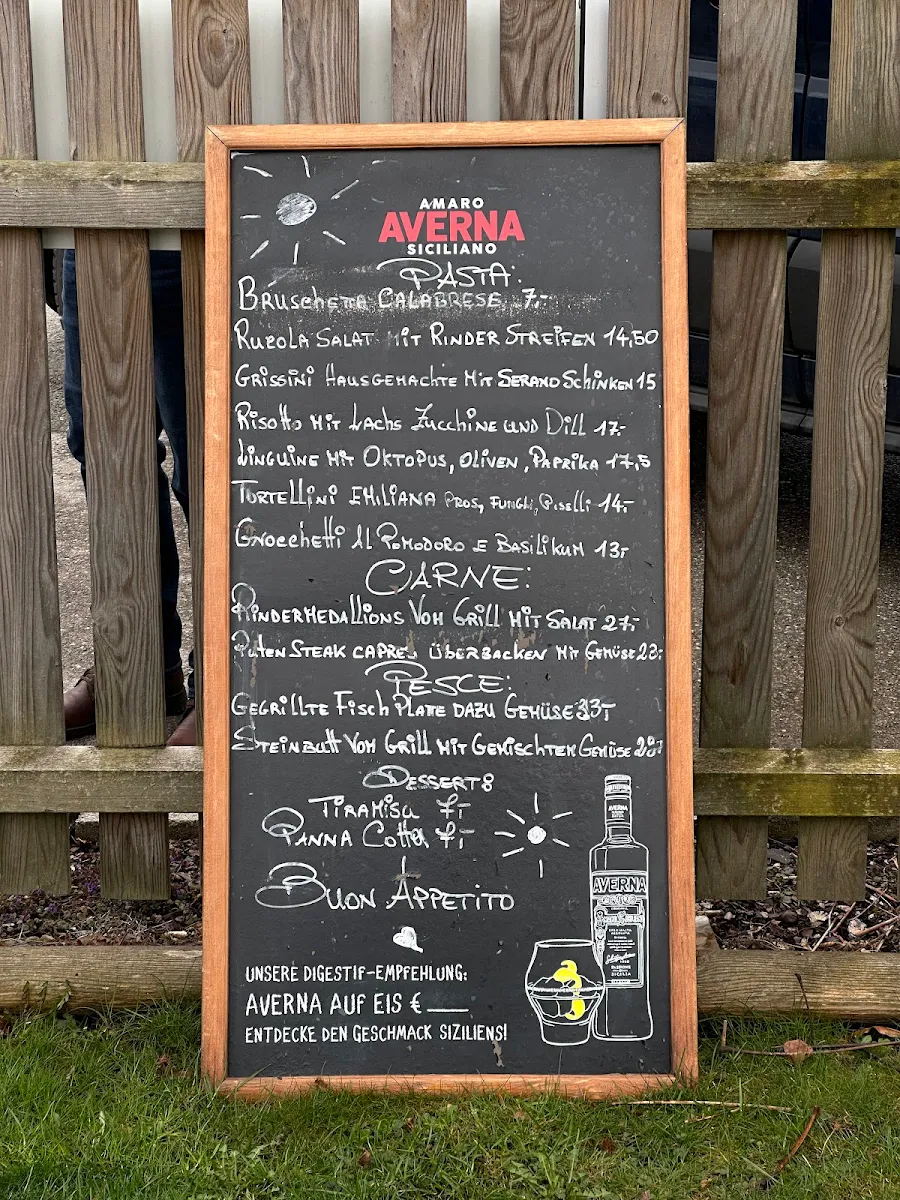 AMARO
AVERNA
SICILIANO
PASTA:
BRUSCHETTA CALABRESE 7.-
RUZOLA SALAT MIT RINDER STREIFEN 14,50
GRISSINI HAUSGEMACHTE MIT SERANO SCHINKEN 15
RISOTTO MIT LACHS ZUCCHINE UND DILL 17.-
LINGUINE MIT OKTOPUS, OLIVEN, PAPRIKA 17,5
TORTELLINI EMILIANA PROS, FUNGHI, PISELLI 14.-
GNOCCHETTI AL POMODORO E BASILIKUM 13.-
CARNE:
RINDERMEDALLIONS VOM GRILL MIT SALAT 27.-
PUTEN STEAK CAPRESE ÜBERBACKEN MIT GEMÜSE 23.-
PESCE:
GEGRILLTE FISCH PLATE DAZU GEMÜSE 33.-
STEINBUTT VOM GRILL MIT GEMISCHTEM GEMÜSE
DESSERT:
TIRAMISU 7.-
PANNA COTTA 7.-
BUON APPETITO
UNSERE DIGESTIF-EMPFEHLUNG:
AVERNA AUF EIS € ___
ENTDECKE DEN GESCHMACK SIZILIENS!
AVERNA
AVERNA